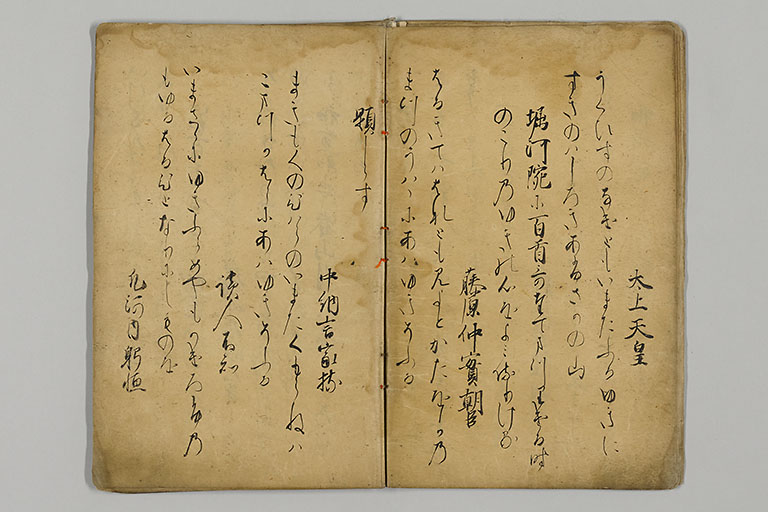 太上天皇
うくひすのなけともいまたふるゆきに
すきのはしろきあふさかの山
堀河院に百首哥たてまつりける時
のこりのゆきの心をよみ侍りける
藤原仲實朝臣
はるきてははなとも見よとかたをかの
まつのうははにあはゆきそふる
題しらす
中納言家持
まきもくのひはらのいまたくもらねは
こまつかはらにあはゆきそふる
読人不知
いまさらにゆきふらめやもかけろふの
もゆるはるひとなりにしものを
凡河内躬恒